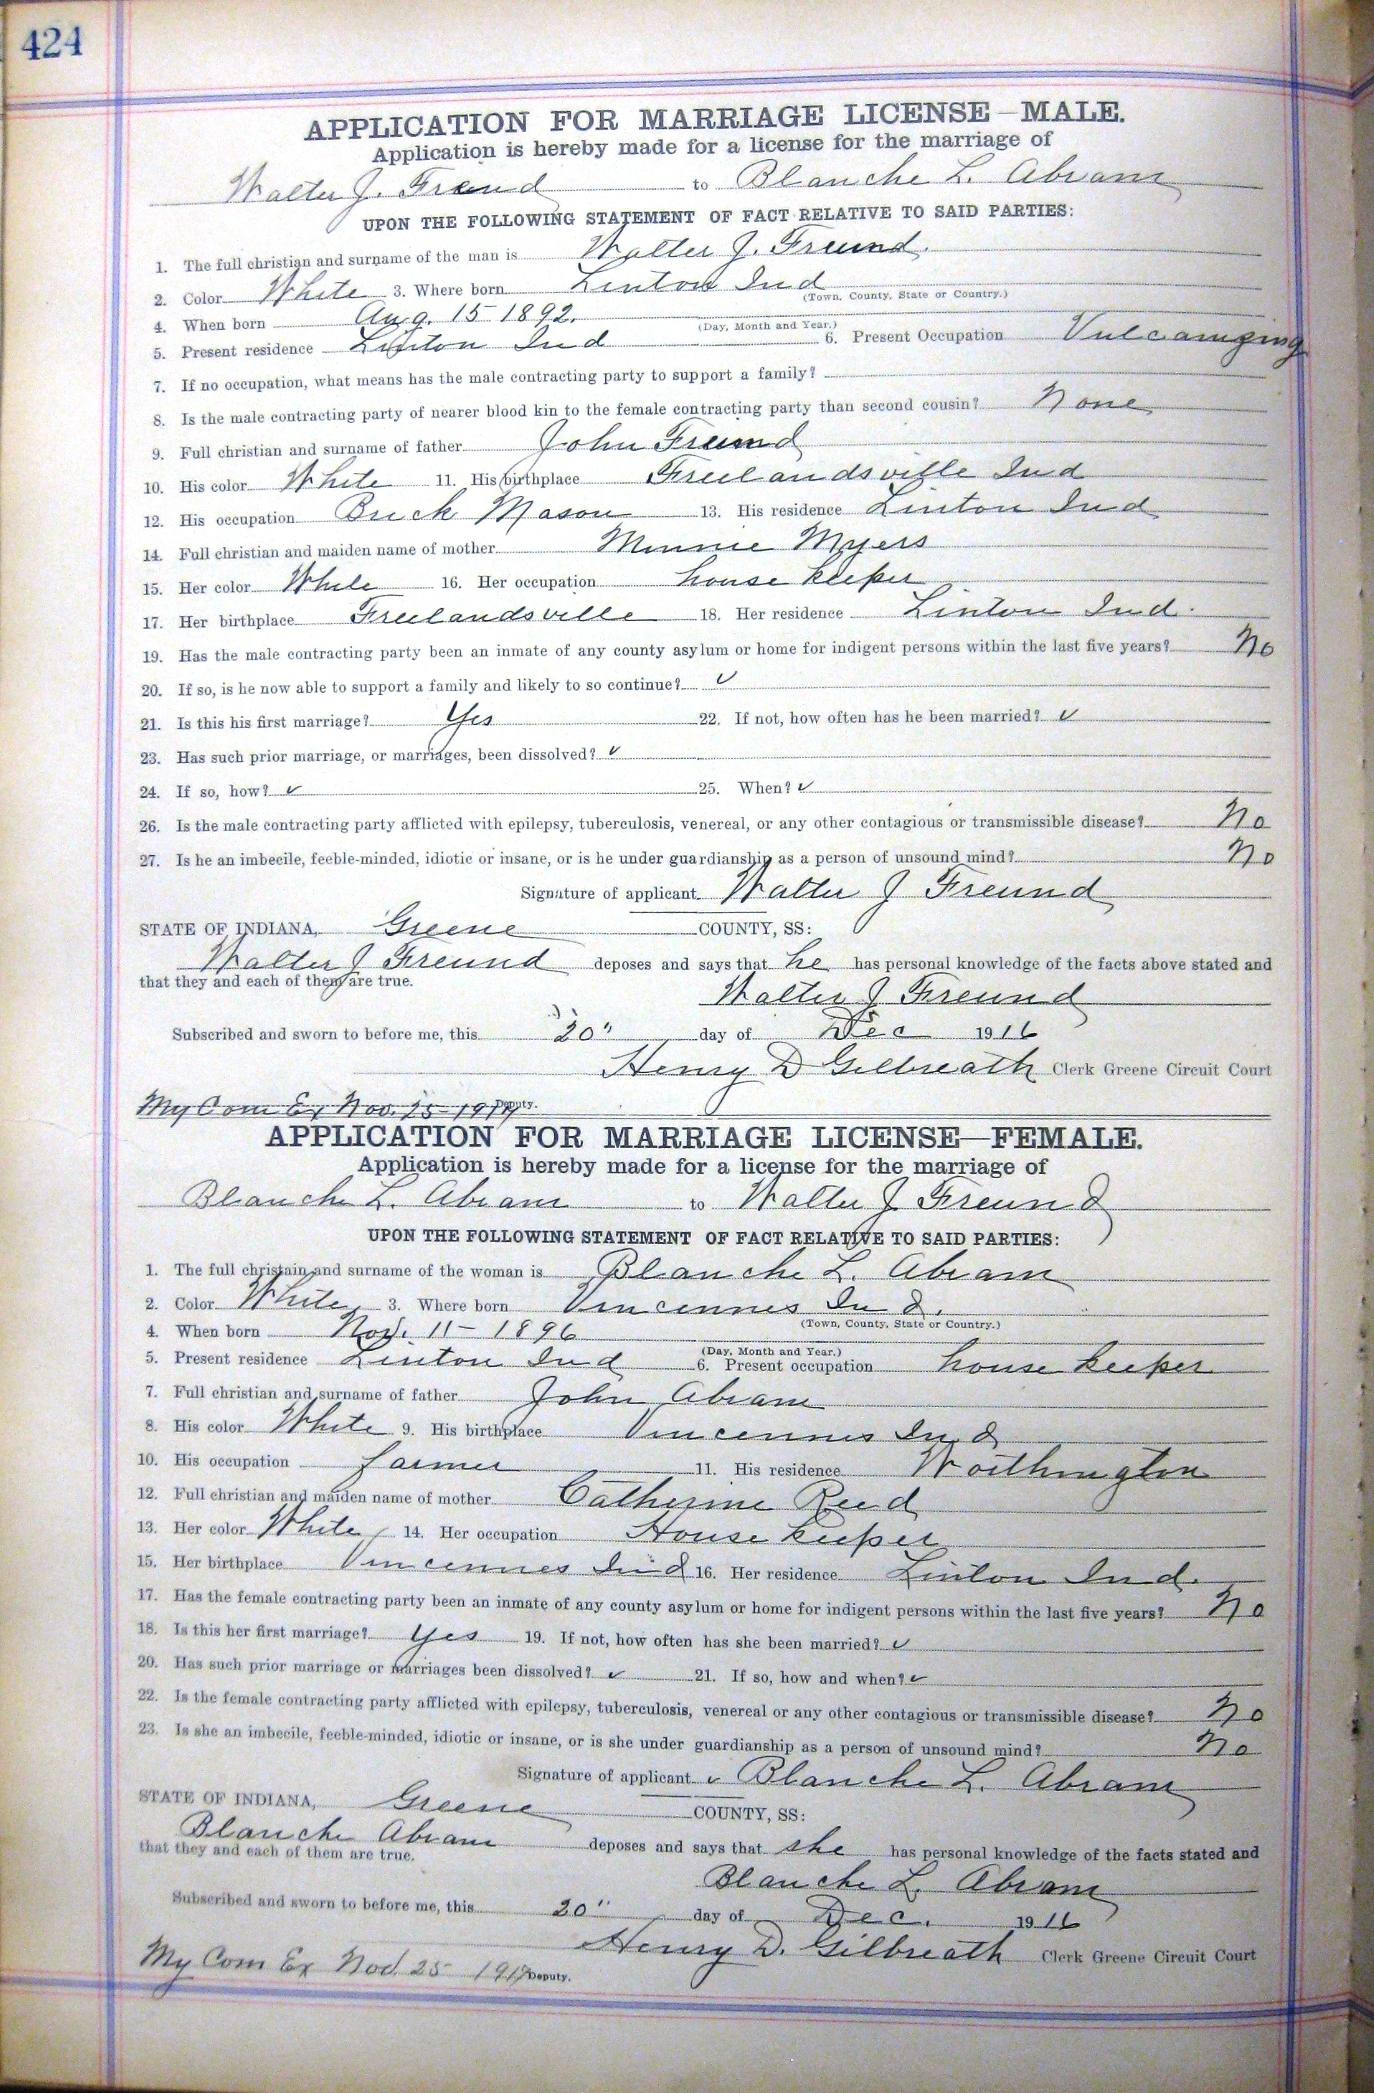 424
APPLICATION FOR MARRIAGE LICENSE—MALE.
Application is hereby made for a license for the marriage of
Walter J. Freund to Blanche L. Abram
UPON THE FOLLOWING STATEMENT OF FACT RELATIVE TO SAID PARTIES:
1. The full christian and surname of the man is Walter J. Freund.
2. Color White 3. Where born Linton Ind
(Town, County, State or Country.)
4. When born Aug. 15 1892.
(Day, Month and Year.)
5. Present residence Linton Ind 6. Present Occupation Vulcanizing
7. If no occupation, what means has the male contracting party to support a family?
8. Is the male contracting party of nearer blood kin to the female contracting party than second cousin? None
9. Full christian and surname of father John Freund
10. His color White 11. His birthplace Freelandsville Ind
12. His occupation Brick Mason 13. His residence Linton Ind
14. Full christian and maiden name of mother Minnie Myers
15. Her color White 16. Her occupation house keeper
17. Her birthplace Freelandsville 18. Her residence Linton Ind.
19. Has the male contracting party been an inmate of any county asylum or home for indigent persons within the last five years? No
20. If so, is he now able to support a family and likely to so continue? ✓
21. Is this his first marriage? Yes 22. If not, how often has he been married? ✓
23. Has such prior marriage, or marriages, been dissolved? ✓
24. If so, how? ✓ 25. When? ✓
26. Is the male contracting party afflicted with epilepsy, tuberculosis, venereal, or any other contagious or transmissible disease? No
27. Is he an imbecile, feeble-minded, idiotic or insane, or is he under guardianship as a person of unsound mind? No
Signature of applicant Walter J Freund
STATE OF INDIANA, Greene COUNTY, SS:
Walter J Freund deposes and says that he has personal knowledge of the facts above stated and
that they and each of them are true.
Walter J Freund
Subscribed and sworn to before me, this 20" day of Dec 1916
Henry D Gilbreath Clerk Greene Circuit Court
My Com Ex Nov. 25 1917 Deputy.
APPLICATION FOR MARRIAGE LICENSE—FEMALE.
Application is hereby made for a license for the marriage of
Blanche L. Abram to Walter J. Freund
UPON THE FOLLOWING STATEMENT OF FACT RELATIVE TO SAID PARTIES:
1. The full christain and surname of the woman is Blanche L. Abram
2. Color White 3. Where born Vincennes Ind.
(Town, County, State or Country.)
4. When born Nov. 11 – 1896
(Day, Month and Year.)
5. Present residence Linton Ind 6. Present occupation house keeper
7. Full christian and surname of father John Abram
8. His color White 9. His birthplace Vincennes Ind
10. His occupation farmer 11. His residence Worthington
12. Full christian and maiden name of mother Catherine Reed
13. Her color White 14. Her occupation House keeper
15. Her birthplace Vincennes Ind 16. Her residence Linton Ind.
17. Has the female contracting party been an inmate of any county asylum or home for indigent persons within the last five years? No
18. Is this her first marriage? Yes 19. If not, how often has she been married? ✓
20. Has such prior marriage or marriages been dissolved? ✓ 21. If so, how and when? ✓
22. Is the female contracting party afflicted with epilepsy, tuberculosis, venereal or any other contagious or transmissible disease? No
23. Is she an imbecile, feeble-minded, idiotic or insane, or is she under guardianship as a person of unsound mind? No
Signature of applicant ✓ Blanche L. Abram
STATE OF INDIANA, Greene COUNTY, SS:
Blanche Abram deposes and says that she has personal knowledge of the facts stated and
that they and each of them are true.
Blanche L. Abram
Subscribed and sworn to before me, this 20" day of Dec. 1916
Henry D. Gilbreath Clerk Greene Circuit Court
My Com Ex Nov. 25 1917 Deputy.